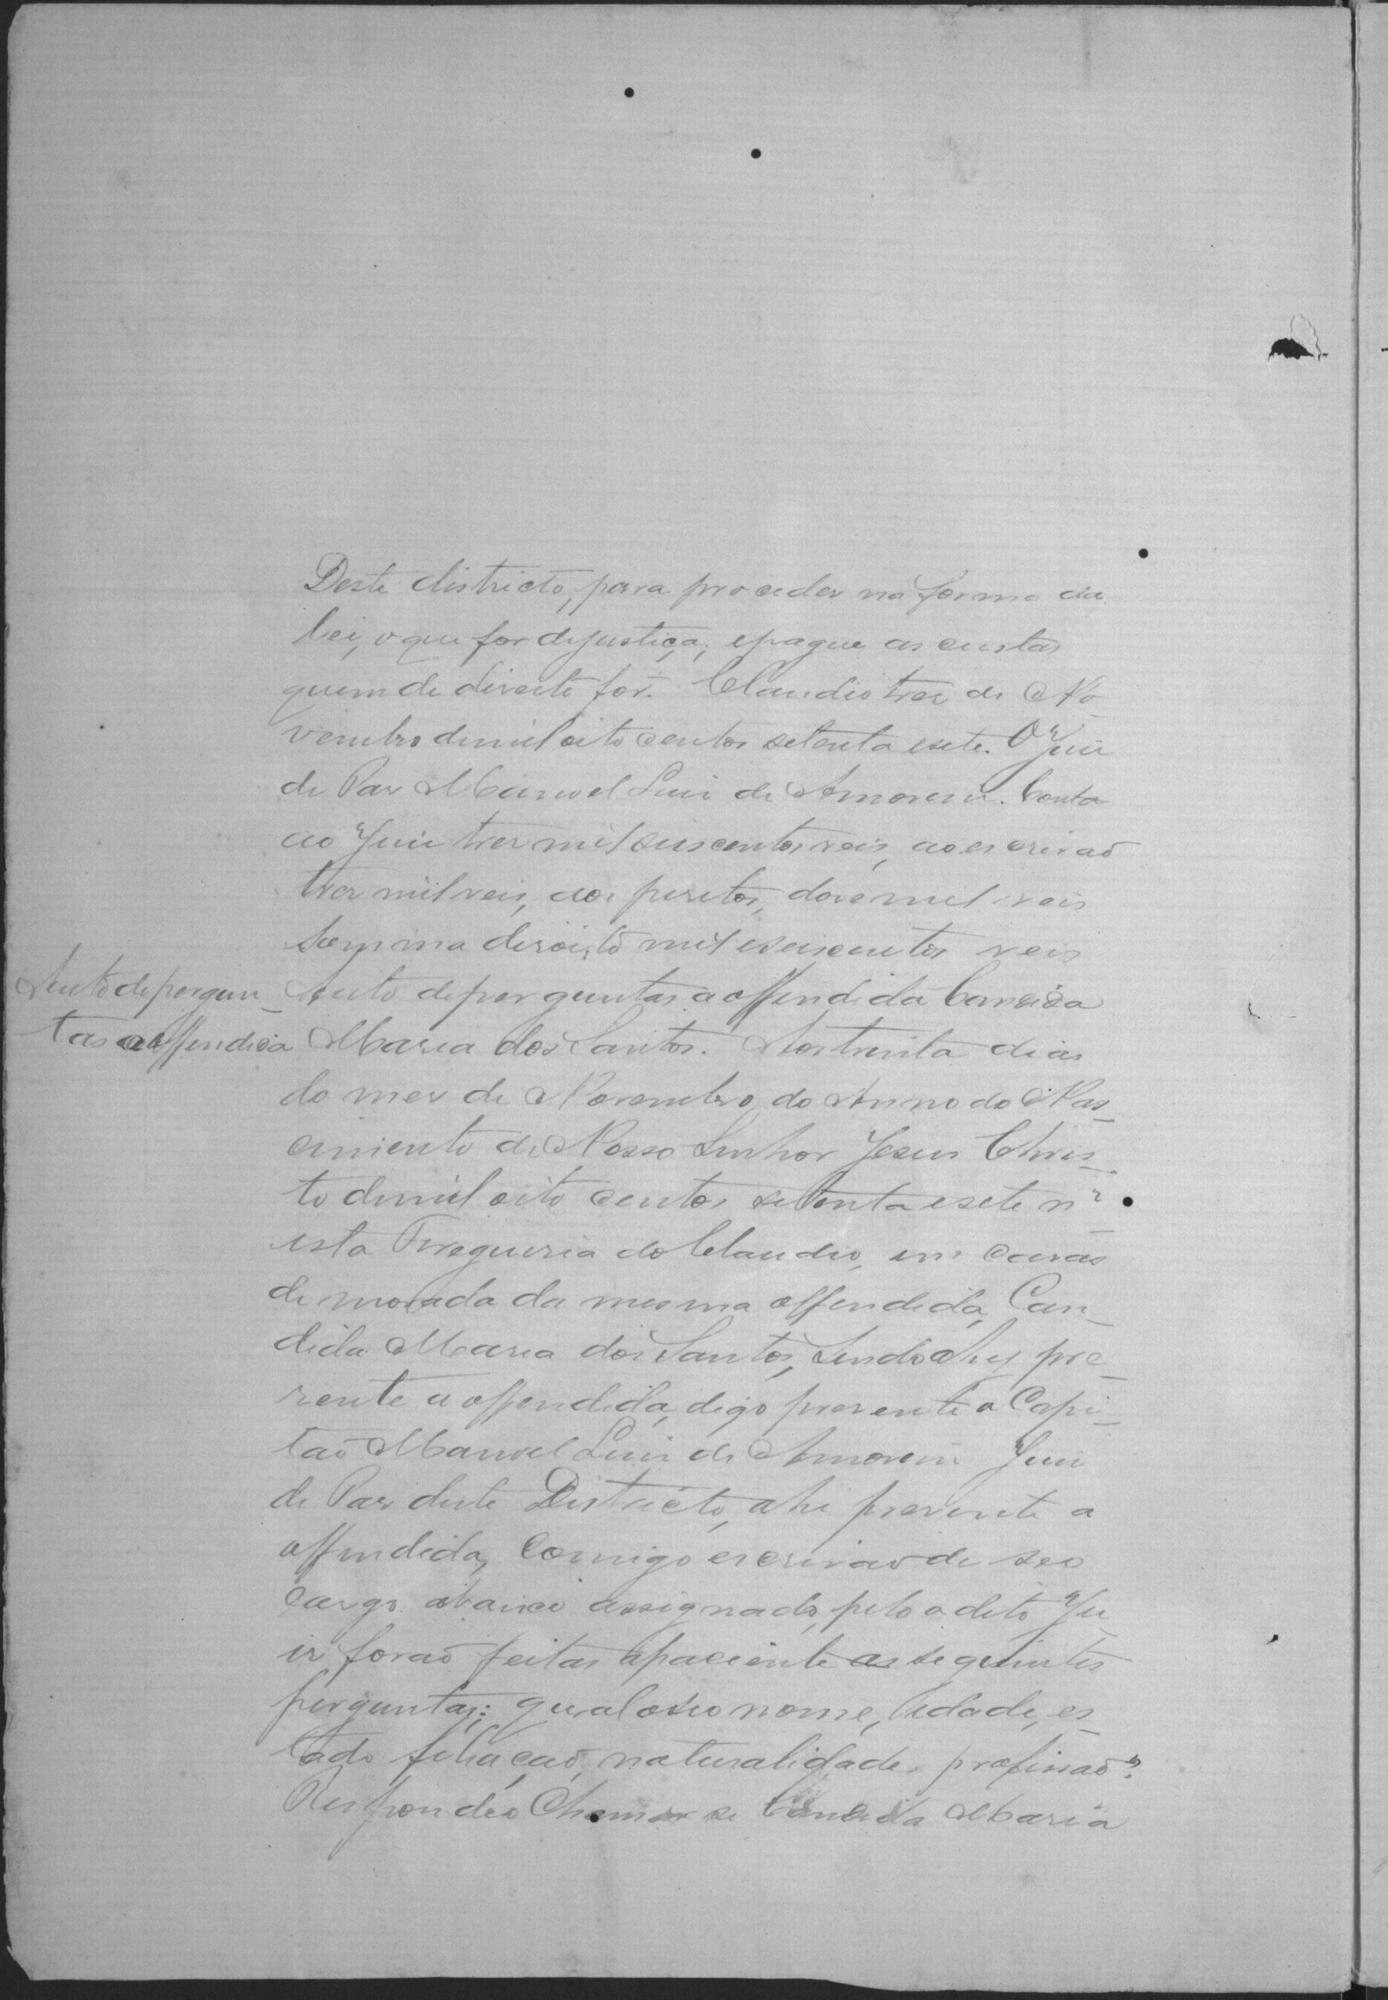 Deste districto, para proceder na forma da
lei, o que for de justiça, e pague as custas
quem de direito for. Claudio tres de No-
vembro de mil oito centos setenta e sete. O Juiz
de Paz Manoel Luiz de Amorim. Conta
ao Juiz tres mil seiscentos reis, ao escrivaõ
tres mil reis, aos peritos, dose mil reis
Somma desoito mil e seiscentos reis
Auto de pergun-
tas a offendida
Auto de perguntas a offendida Candida
Maria dos Santos. Aos trinta dias
do mes de Novembro do Anno do Nas-
cimento de Nosso Senhor Jesus Chris-
to de mil oito centos setenta e sete n'
esta Freguesia do Claudio, em casas
de morada da mesma offendida, Can-
dida Maria dos Santos, sendo ahy pre-
sente a offendida, digo presente o Capi-
taõ Manoel Luiz de Amorim Juiz
de Paz deste Districto, ahi presente a
offendida, Comigo escrivaõ de seo
cargo abaixo assignado, pelo o dito Ju-
iz foraõ feitas a paciente as seguintes
perguntas: qual o seo nome, hidade, es-
tado filiaçaõ, naturalidade, profissaõ?
Respondeo Chamar se Candida Maria